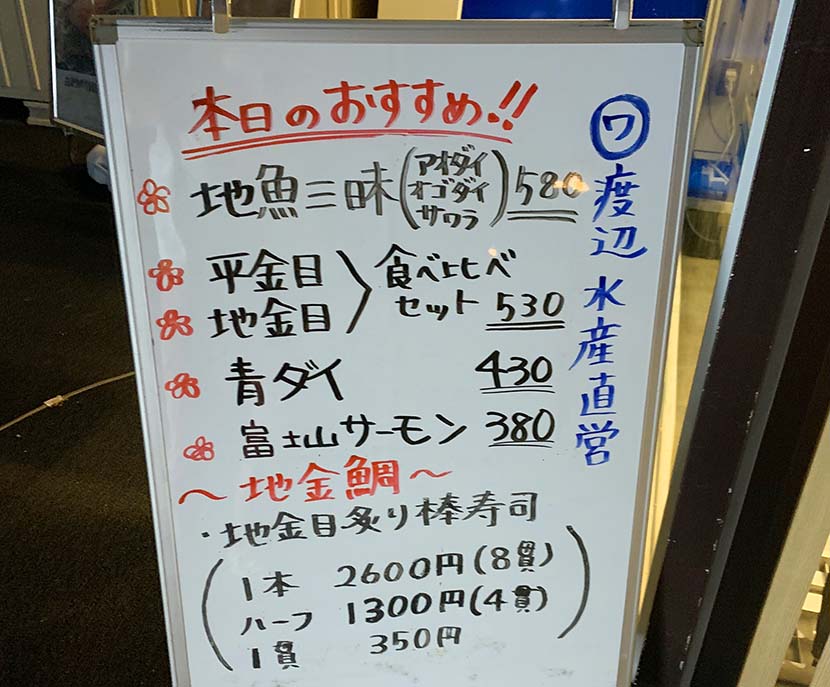 本日のおすすめ!!
地魚三味(アオダイ オゴダイ サワラ) 580
平金目
地金目
食べ比べ
セット 530
青ダイ 430
富士山サーモン 380
〜地金鯛〜
・地金目炙り棒寿司
(1本 2600円(8貫)
ハーフ 1300円(4貫)
1貫 350円)
ワ 渡辺水産直営